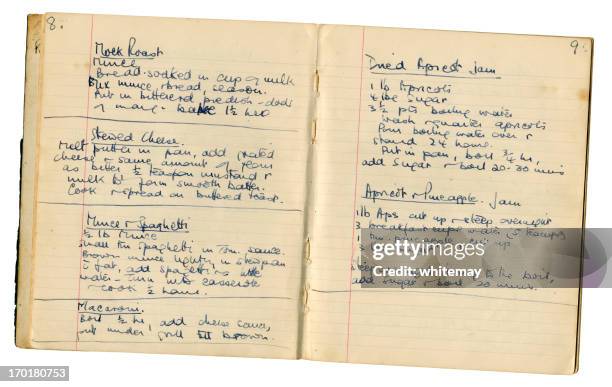 8.
Mock Roast
Mince
Bread soaked in cup of milk
Mix mince, bread, season.
Put in buttered piedish - dods
of marg - bake 1½ hrs
Stewed Cheese.
Melt butter in pan, add grated
cheese & same amount of
as butter ½ teaspoon mustard &
milk to form smooth batter.
Cook & spread on buttered toast.
Mince & Spaghetti
½ lb Mince
small tin Spaghetti in Tom. sauce.
Brown mince lightly in stewpan
fat, add spaghetti & little
water - turn into casserole
& cook ½ hour.
Macaroni.
Boil ½ hr, add cheese sauce,
put under grill till brown.
9.
Dried Apricot Jam
1 lb Apricots
4 lbs sugar
3½ pts boiling water
Wash & quarter apricots
Pour boiling water over &
stand 24 hours.
Put in pan, boil ¾ hr,
add sugar & boil 20-30 mins
Apricot & Pineapple Jam
1 lb Aps cut up & steep overnight
3 breakfast cups water
1 up
to the boil,
add sugar & boil 20 minutes.
gettyimages
Credit: whitemay
170180753